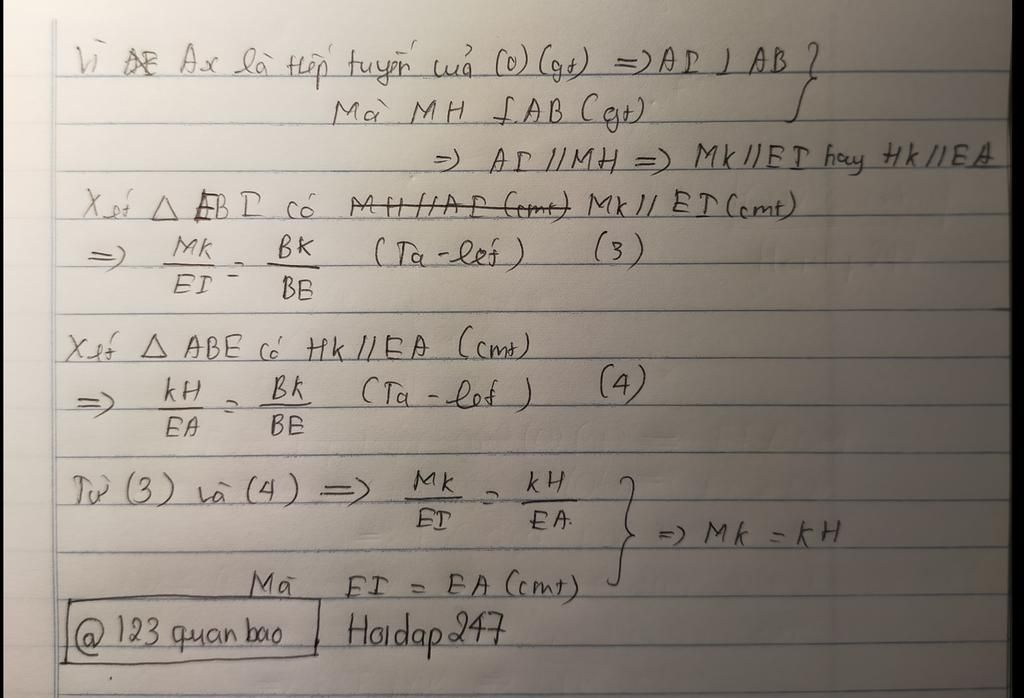 Vì Ax là tiếp tuyến của (O) (gt) => AI ⊥ AB }
Mà MH ⊥ AB (gt)
=> AI // MH => MK // EI hay HK // EA
Xét △ EBI có MH // AI (cmt) MK // EI (cmt)
=> MK/EI = BK/BE (Ta-lét) (3)
Xét △ ABE có HK // EA (cmt)
=> KH/EA = BK/BE (Ta-lét) (4)
Từ (3) và (4) => MK/EI = KH/EA } => MK = KH
Mà EI = EA (cmt)
@ 123 quan bao Hoidap247